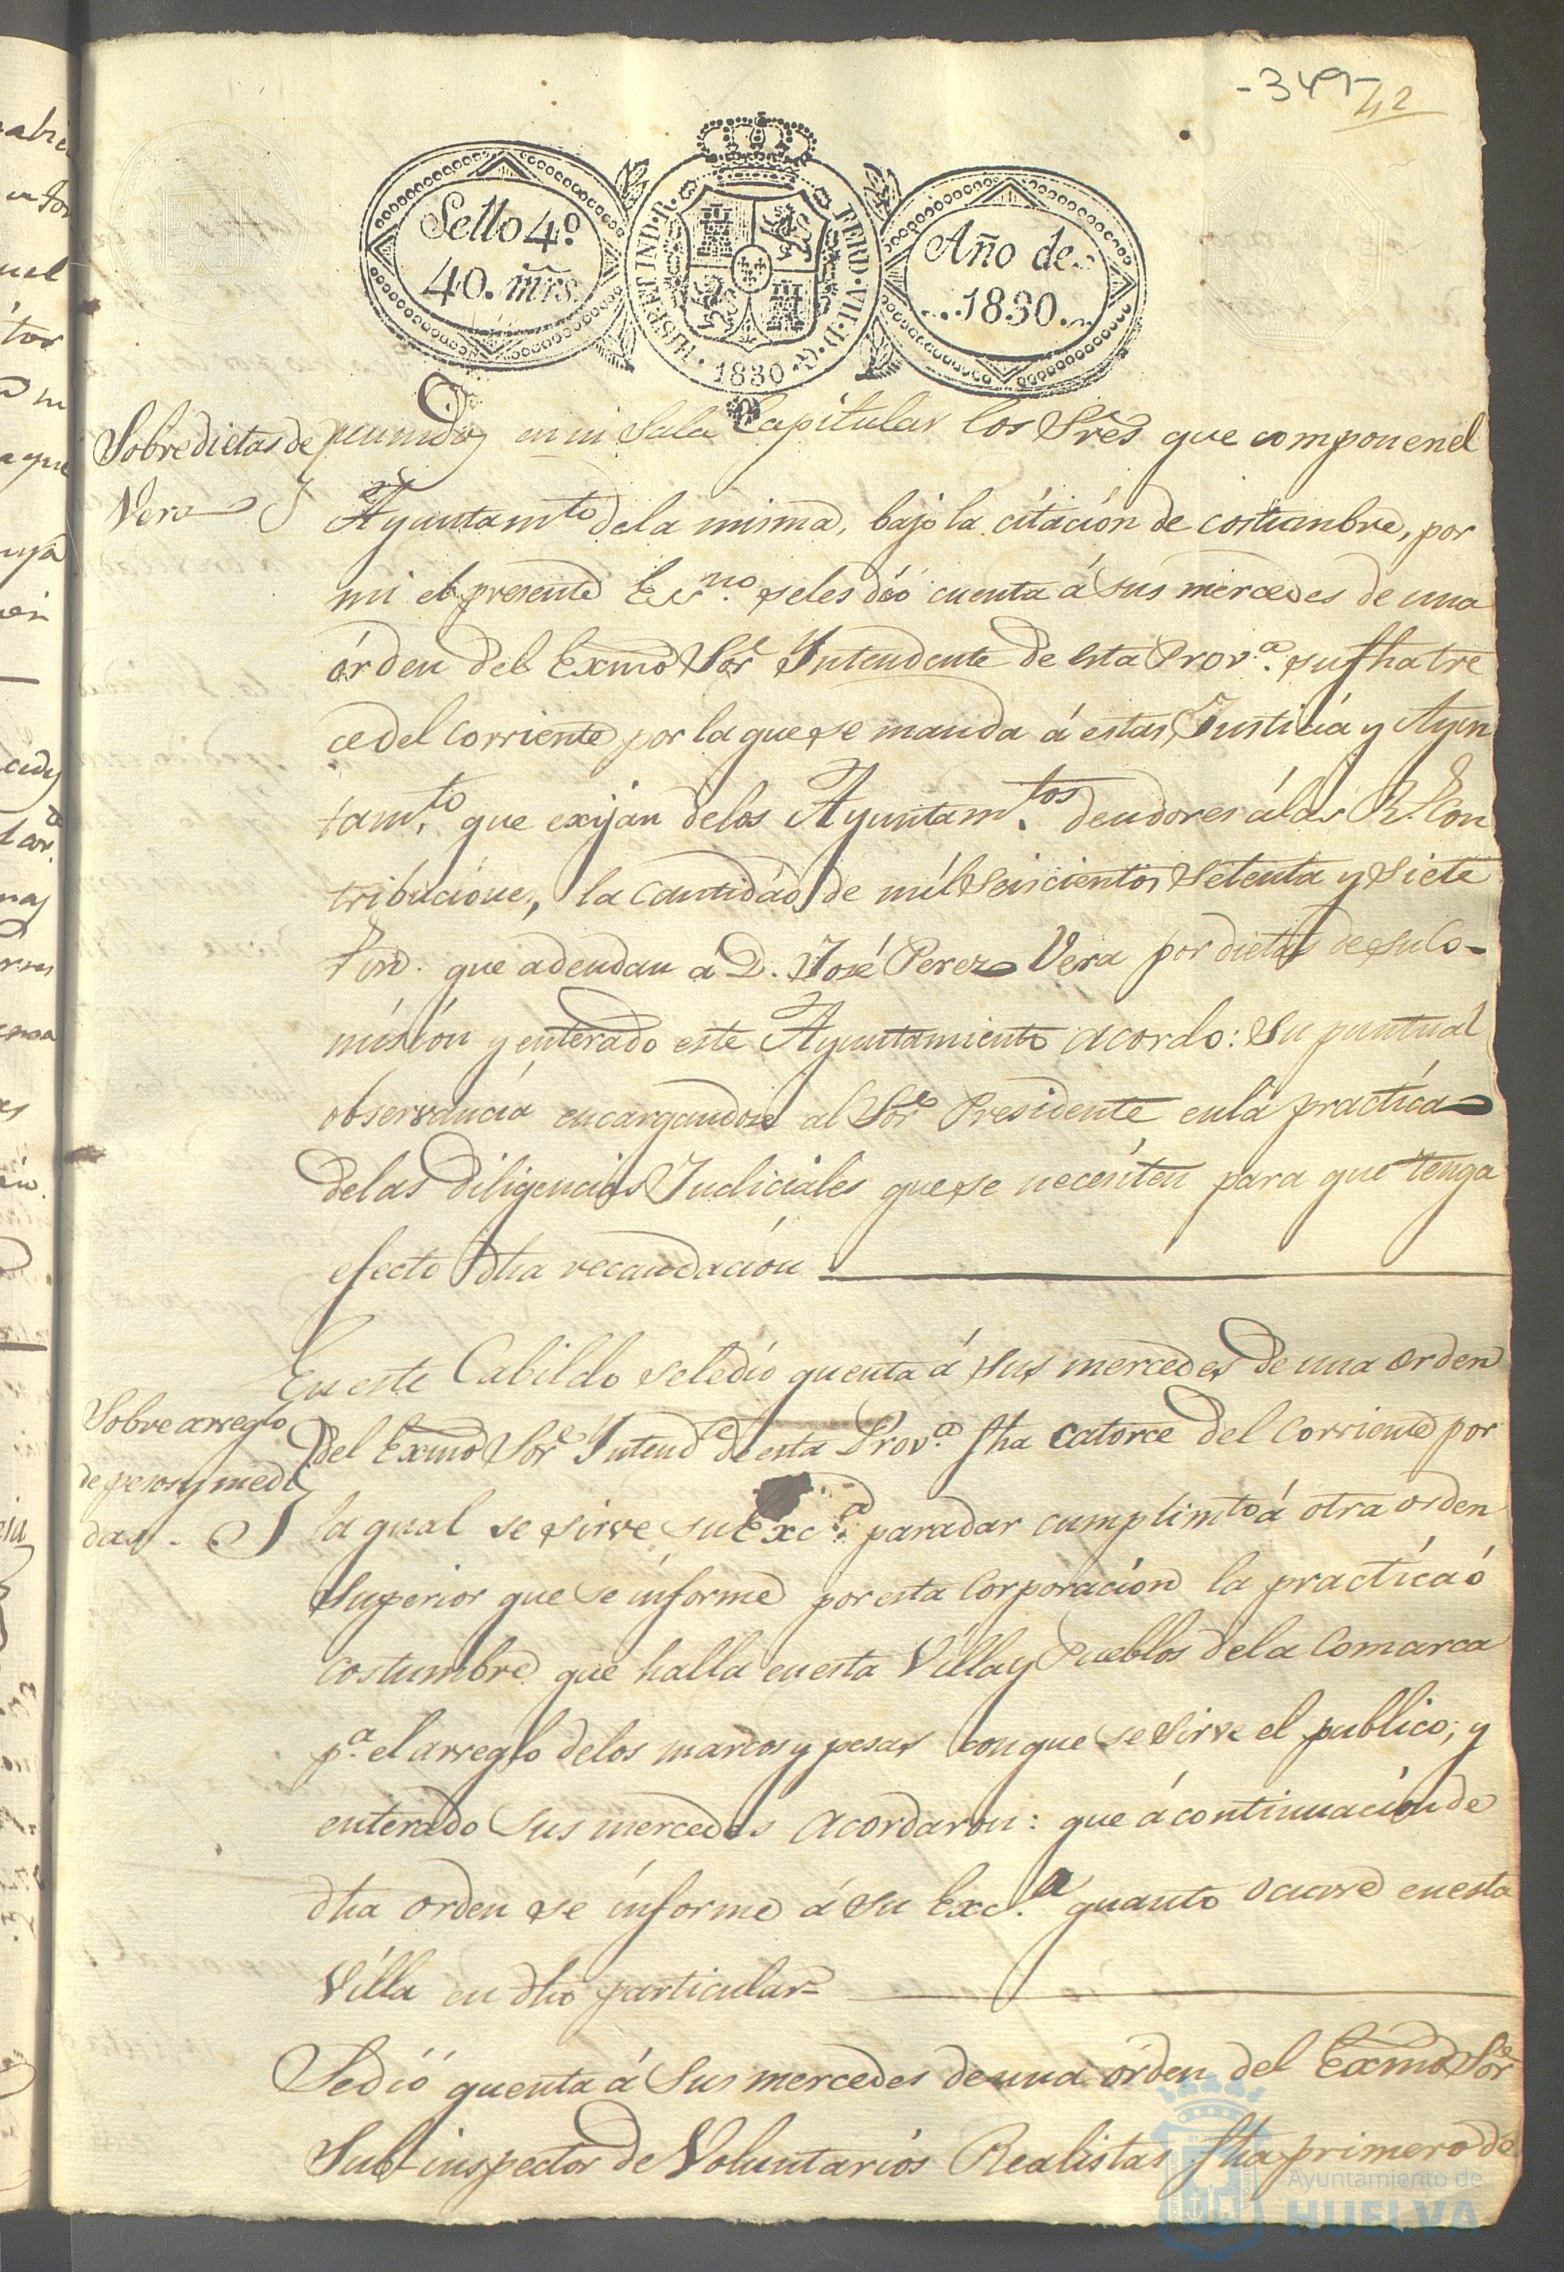 -349-
42
Sello 4º
40. mrs.
HISP. ET IND. R. FERD. VII. D. G.
1830
Año de
1830.
Sobre dietas de
Vera
reunidos en su Sala Capitular los Sres que componen el
Ayuntamto de la misma, bajo la citación de costumbre, por
mi el presente Essno. se les dió cuenta á sus mercedes de una
órden del Exmo Sor Intendente de esta Prova. su fha tre
ce del corriente por la que se manda á estas Justicia y Ayun
tamto. que exijan de los Ayuntamtos. deudores á las Rs. Con
tribuciones, la cantidad de mil seiscientos setenta y siete
que adeudan á D. José Perez Vera por dietas de su Co-
misión y enterado este Ayuntamiento acordo: Su puntual
observancia encargandose al Sor Presidente en la practica
de las diligencias Judiciales que se necesiten para que tenga
efecto dha recaudación
En este Cabildo se le dió quenta á sus mercedes de una orden
Sobre arreglo
de pesos y medi
das.
del Exmo Sor Intende de esta Prova. fha catorce del corriente por
la qual se sirve su Exca. para dar cumplimto á otra orden
superior que se informe por esta Corporación la practica ó
costumbre que halla en esta Villa y Pueblos de la Comarca
pa. el arreglo de los marcos y pesas con que se sirve el publico; y
enterado sus mercedes acordaron: que á continuación de
dha orden se informe á su Exca. quanto ocurre en esta
Villa en dho particular
Se dió quenta á sus mercedes de una órden del Exmo Sor
Sub-inspector de Voluntarios Realistas fha primero de
Ayuntamiento de
HUELVA